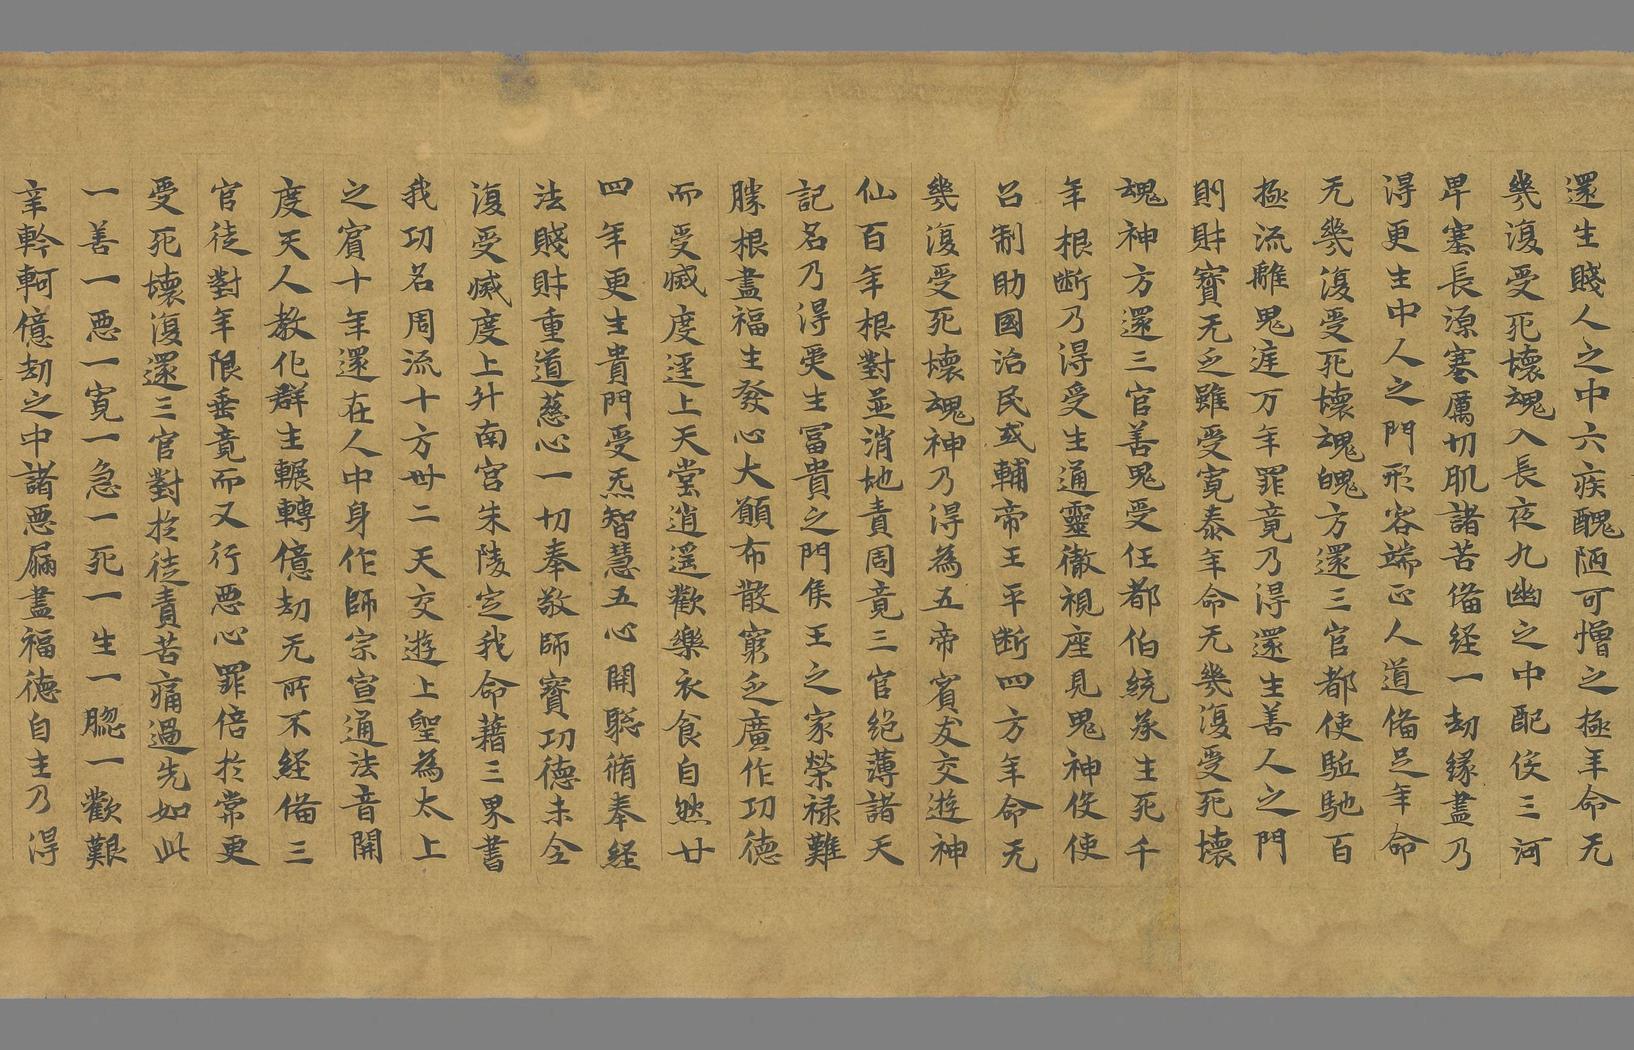 還生賤人之中六疾醜陋可憎之極年命无
幾復受死壞魂入長夜九幽之中配侫三河
昇塞長源寒厲切肌諸苦俻経一劫縁盡乃
淂更生中人之門形容端正人道俻足年命
无幾復受死壞魂魄方還三官都使駈馳百
極流離鬼庭万年罪竟乃得還生善人之門
則財寶无乏雖受寛泰年命无幾復受死壞
魂神方還三官善鬼受任都伯統承生死千
年根断乃得受生通靈徹視座見鬼神役使
召制助國治民或輔帝王平断四方年命无
幾復受死壞魂神乃得為五帝賓友交遊神
仙百年根對並消地責周竟三官絶薄諸天
記名乃得更生冨貴之門侯王之家榮禄難
勝根盡福生發心大願布散窮乏廣作功德
而受滅度逕上天堂逍遥歡樂衣食自然廿
四年更生貴門受炁智慧五心開聡脩奉経
法賤財重道慈心一切奉敬師寳功德未全
復受滅度上升南宫朱陵定我命藉三界書
我功名周流十方卅二天交遊上聖為太上
之賓十年還在人中身作師宗宣通法音開
度天人教化群生輾轉億劫无所不經俻三
官徒對年限垂竟而又行惡心罪倍於常更
受死壞復還三官對於徒責苦痛過先如此
一善一惡一寛一急一死一生一惱一歡艱
辛軡軻億劫之中諸惡屚盡福德自生乃淂